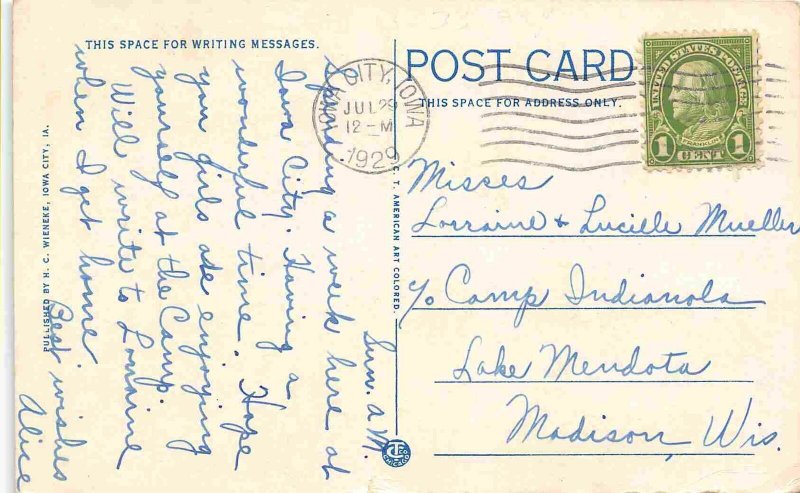 THIS SPACE FOR WRITING MESSAGES.
POST CARD
THIS SPACE FOR ADDRESS ONLY.
IOWA CITY, IOWA
JUL 29
12-M
1929
UNITED STATES POSTAGE
FRANKLIN
1 CENT 1
Sun. a.M.
Spending a week here at
Iowa City. Having a
wonderful time. Hope
you girls are enjoying
yourself at the Camp.
Will write to Lorraine
when I get home.
Best wishes
Alice
Misses
Lorraine & Lucille Mueller
c/o Camp Indianola
Lake Mendota
Madison, Wis.
PUBLISHED BY H. C. WIENEKE, IOWA CITY, IA.
C. T. AMERICAN ART COLORED.
CHICAGO